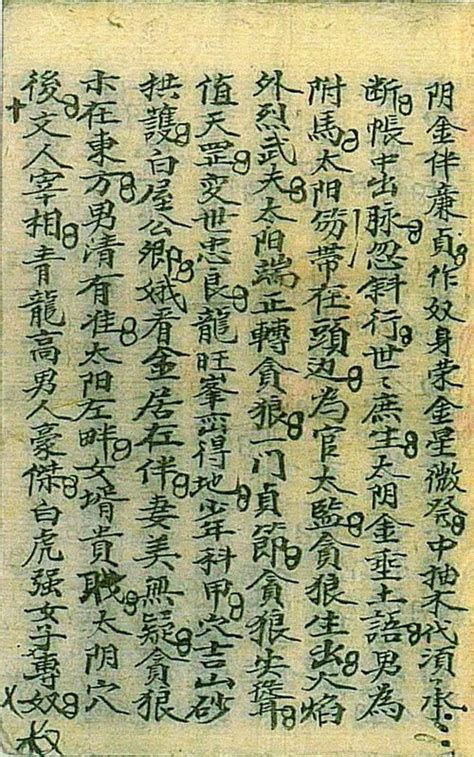 阴金伴廉貞作奴身荣金星微發中抽木代須々承
断帳中出脉忽斜行世々庶生太阴金垂土語男為
附馬太阳笏帶在頭边為官太監貪狼生出火焰
外烈武夫太阳端正轉貪狼一门貞節貪狼尖聳
值天罡变世忠良龍旺峯峦得地少年科甲穴吉山砂
拱護白屋公卿娥看金居在伴妻美無疑貪狼
在東方男清有准太阳左畔女壻貴職太阴穴
後文人宰相青龍高男人豪傑白虎强女子專奴
权